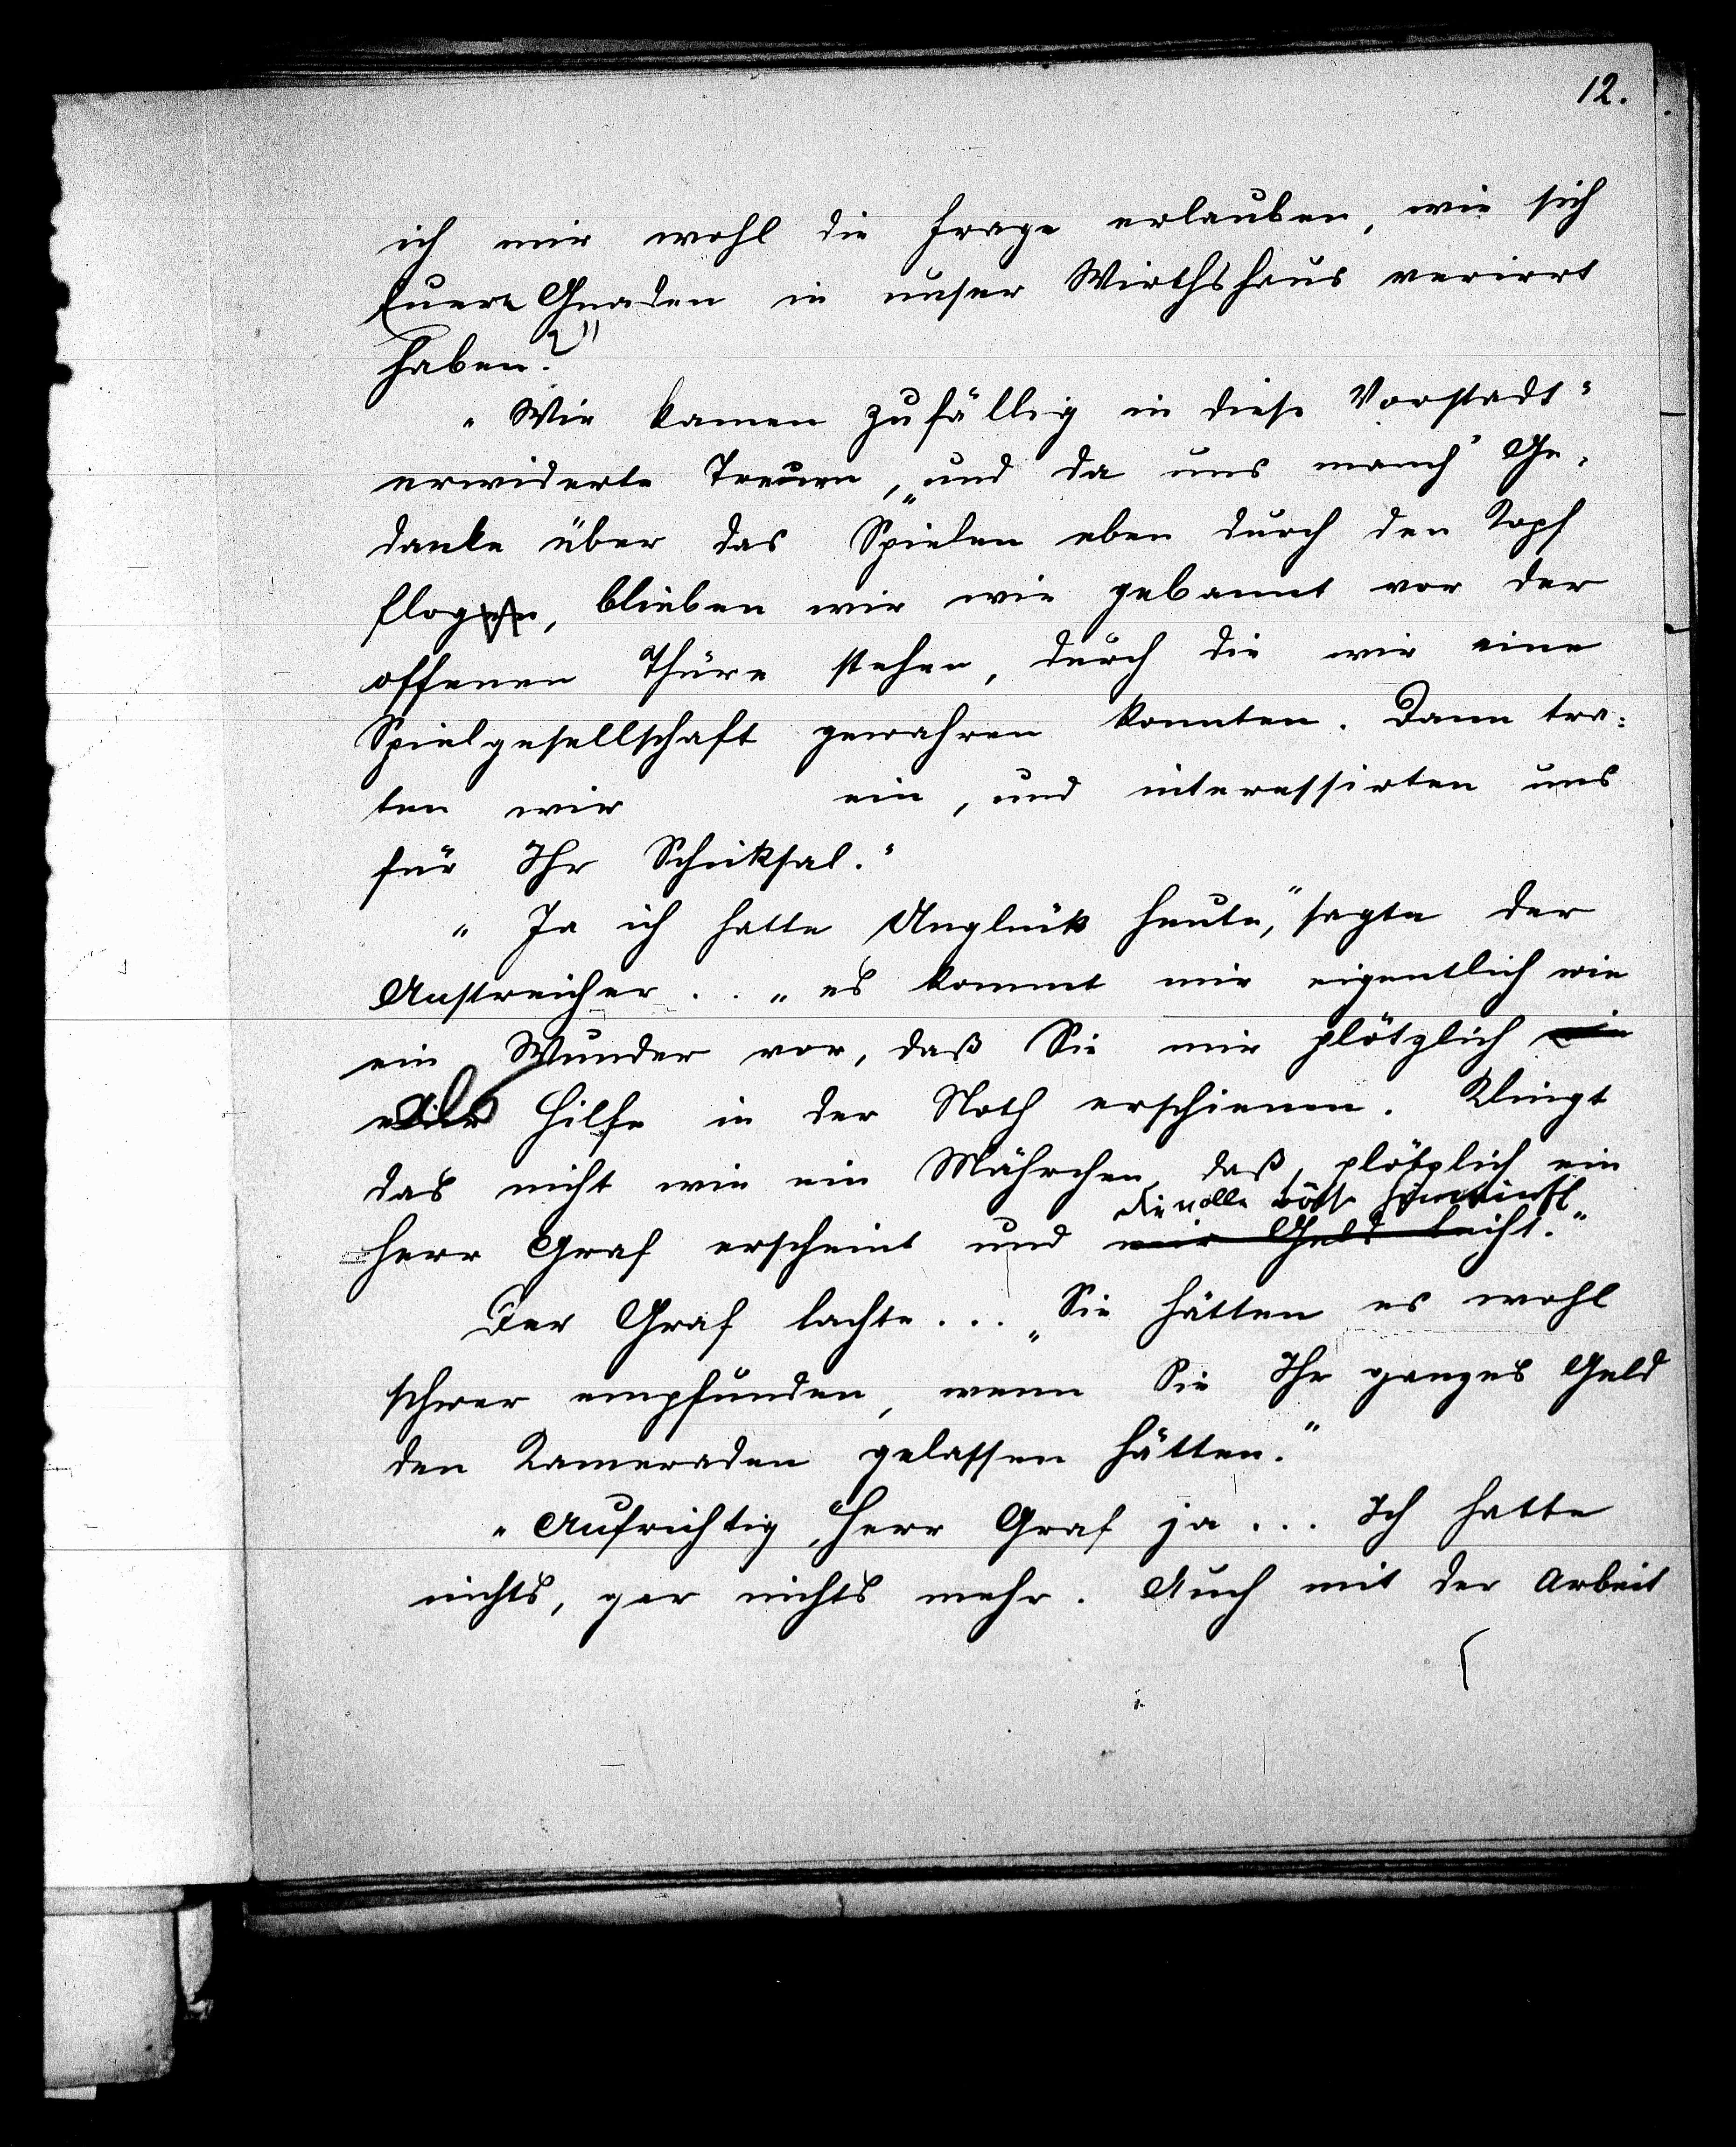 12.
ich mir wohl die Frage erlauben, wie sich
Euere Gnaden in unser Wirthshaus verirrt
haben?"
"Wir kamen zufällig in diese Vorstadt"
erwiderte Treuen, "und da uns manch' Ge-
danke über das Spielen eben durch den Kopf
flog, blieben wir wie gebannt vor der
offenen Thüre stehen, durch die wir eine
Spielgesellschaft gewahren konnten. Dann tra-
ten wir ein, und interessirten uns
für Ihr Schiksal."
"Ja ich hatte Unglück heute," sagte der
Anstreicher... "es kommt mir eigentlich wie
ein Wunder vor, daß Sie mir plötzlich
als Hilfe in der Noth erschienen. Klingt
das nicht wie ein Mährchen, daß plötzlich ein
die volle
Herr Graf erscheint und mir Geld leiht."
Der Graf lachte... "Sie hätten es wohl
schwer empfunden, wenn Sie Ihr ganzes Geld
den Kameraden gelassen hätten."
"Aufrichtig, Herr Graf ja... Ich hatte
nichts, gar nichts mehr. Auch mit der Arbeit